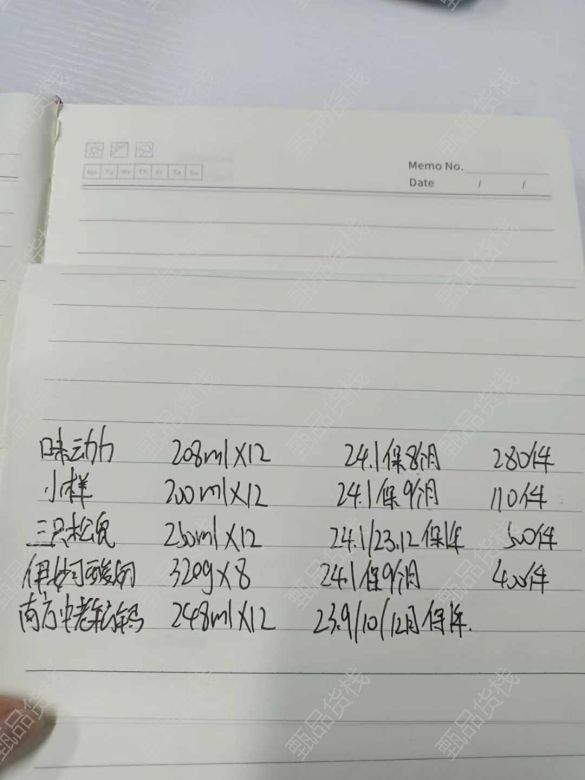 Memo No.
Mo Tu We Th Fr Sa Su
Date / /
味动力 208ml×12 24.1保8个月 280件
小样 200ml×12 24.1保9个月 110件
三只松鼠 250ml×12 24.1/23.12保1年 500件
伊妙可酸奶 320g×8 24.1保9个月 400件
南方中老年钙 248ml×12 23.9/10/12月保1年.
甄品货栈